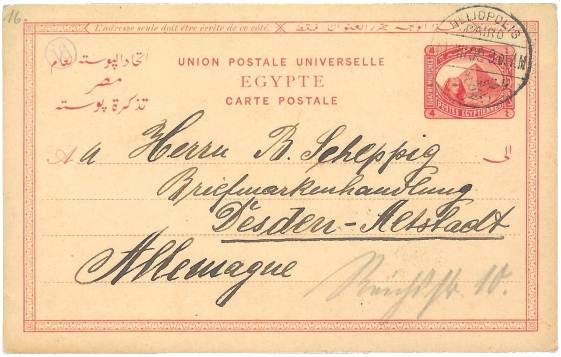 16.
L'adresse seule doit être écrite de ce côté.
اتحاد البوستة العام
مصر
تذكرة بوستة
UNION POSTALE UNIVERSELLE
EGYPTE
CARTE POSTALE
HELIOPOLIS
CAIRO
4 4
POSTES EGYPTIENNES
A الى
a Herrn B. Schleppig
Briefmarkenhandlung
Desden-Altstadt
Allemagne
Reichsstr. 10.